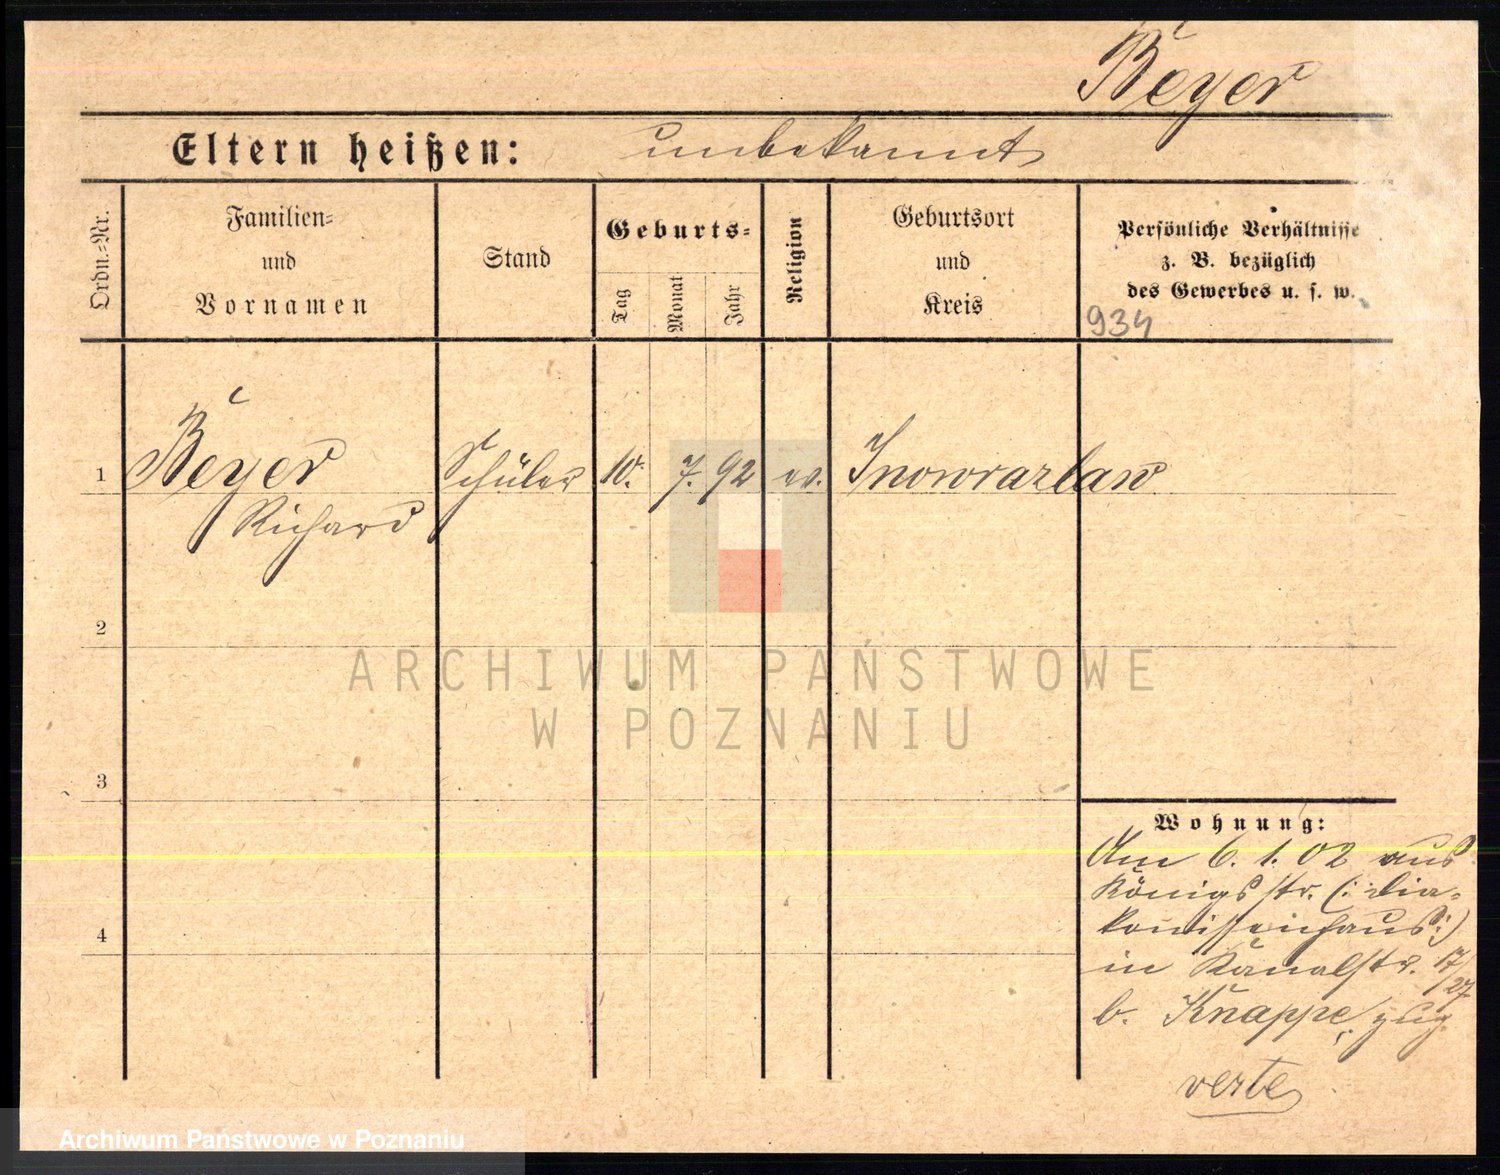 Beyer
Eltern heißen: unbekannt
Ordn.-Nr.
Familien-
und
Vornamen
Stand
Geburts-
Tag
Monat
Jahr
Religion
Geburtsort
und
Kreis
Persönliche Verhältnisse
z. B. bezüglich
des Gewerbes u. s. w.
934
1 Beyer Schüler 10. 7. 92 ev. Inowrazlaw
Richard
2
ARCHIWUM PAŃSTWOWE
W POZNANIU
3
Wohnung:
Am 6. 1. 02 aus
Königsstr. (: Dia-
4 konissenhaus :)
in Kanalstr. 17/27
b. Knappe, zug
verte
Archiwum Państwowe w Poznaniu